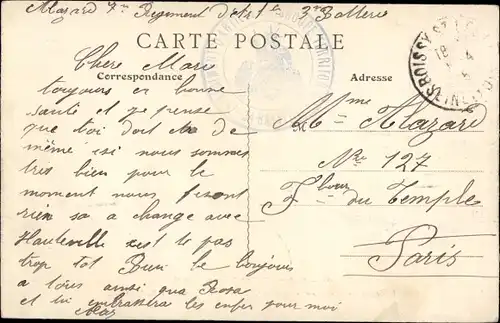 Mazard 7m Regiment d'Art 3m Batterie
CARTE POSTALE
Correspondance
Adresse
BOISSY ST L
Chere Marie
toujours en bonne
santé et je pense
que toi doit de
même isi nous sommes
tres bien pour le
moment nous fesont
rien sa a change avec
Hauteville cest le pas
trop tot Bien le bonjour
a tous ainsi qua Rosa
et tu embrassera les enfen pour moi
Maz
Mme Mazard
No 127
Fbour du Temple
Paris